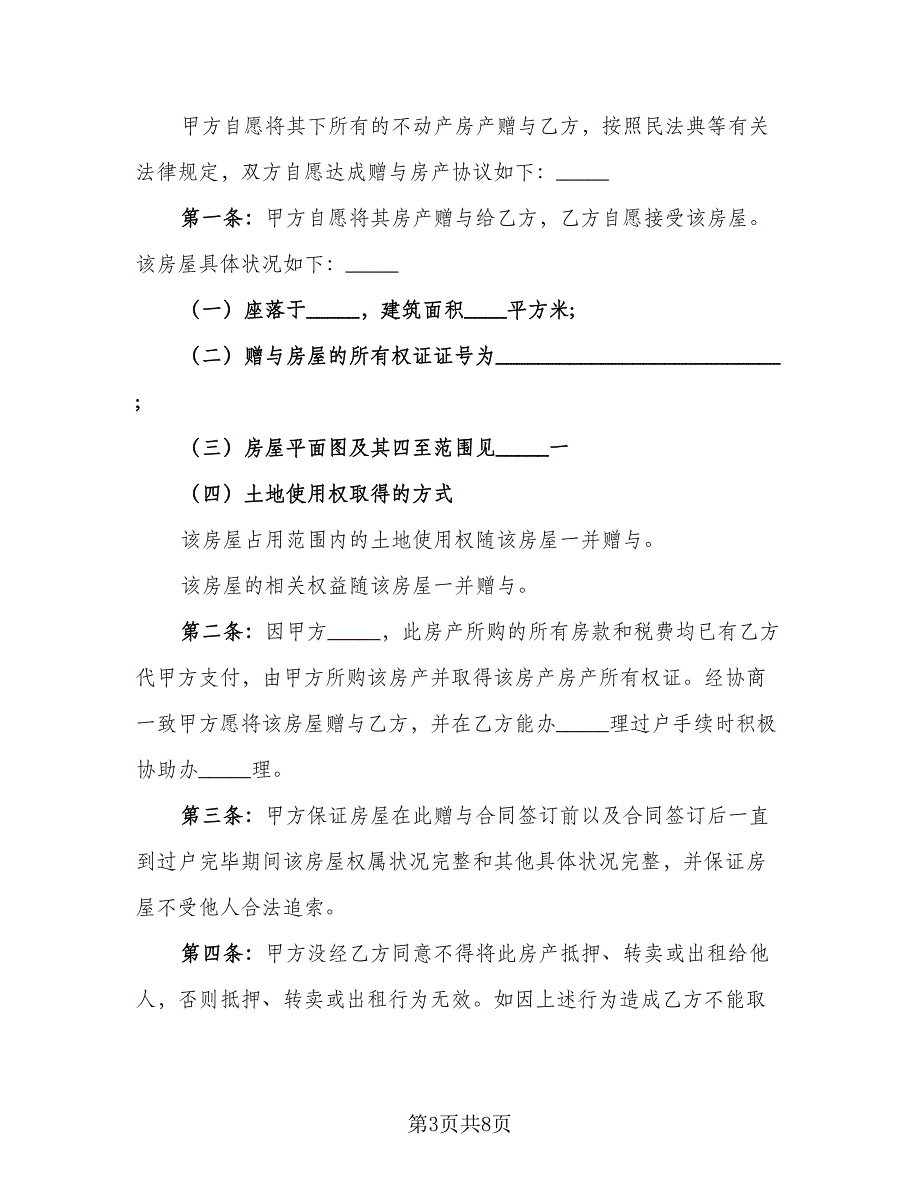 甲方自愿将其下所有的不动产房产赠与乙方，按照民法典等有关
法律规定，双方自愿达成赠与房产协议如下：_____
第一条：甲方自愿将其房产赠与给乙方，乙方自愿接受该房屋。
该房屋具体状况如下：_____
（一）座落于_____，建筑面积____平方米;
（二）赠与房屋的所有权证证号为___________________________
;
（三）房屋平面图及其四至范围见_____一
（四）土地使用权取得的方式
该房屋占用范围内的土地使用权随该房屋一并赠与。
该房屋的相关权益随该房屋一并赠与。
第二条：因甲方_____，此房产所购的所有房款和税费均已有乙方
代甲方支付，由甲方所购该房产并取得该房产房产所有权证。经协商
一致甲方愿将该房屋赠与乙方，并在乙方能办_____理过户手续时积极
协助办_____理。
第三条：甲方保证房屋在此赠与合同签订前以及合同签订后一直
到过户完毕期间该房屋权属状况完整和其他具体状况完整，并保证房
屋不受他人合法追索。
第四条：甲方没经乙方同意不得将此房产抵押、转卖或出租给他
人，否则抵押、转卖或出租行为无效。如因上述行为造成乙方不能取
第3页共8页